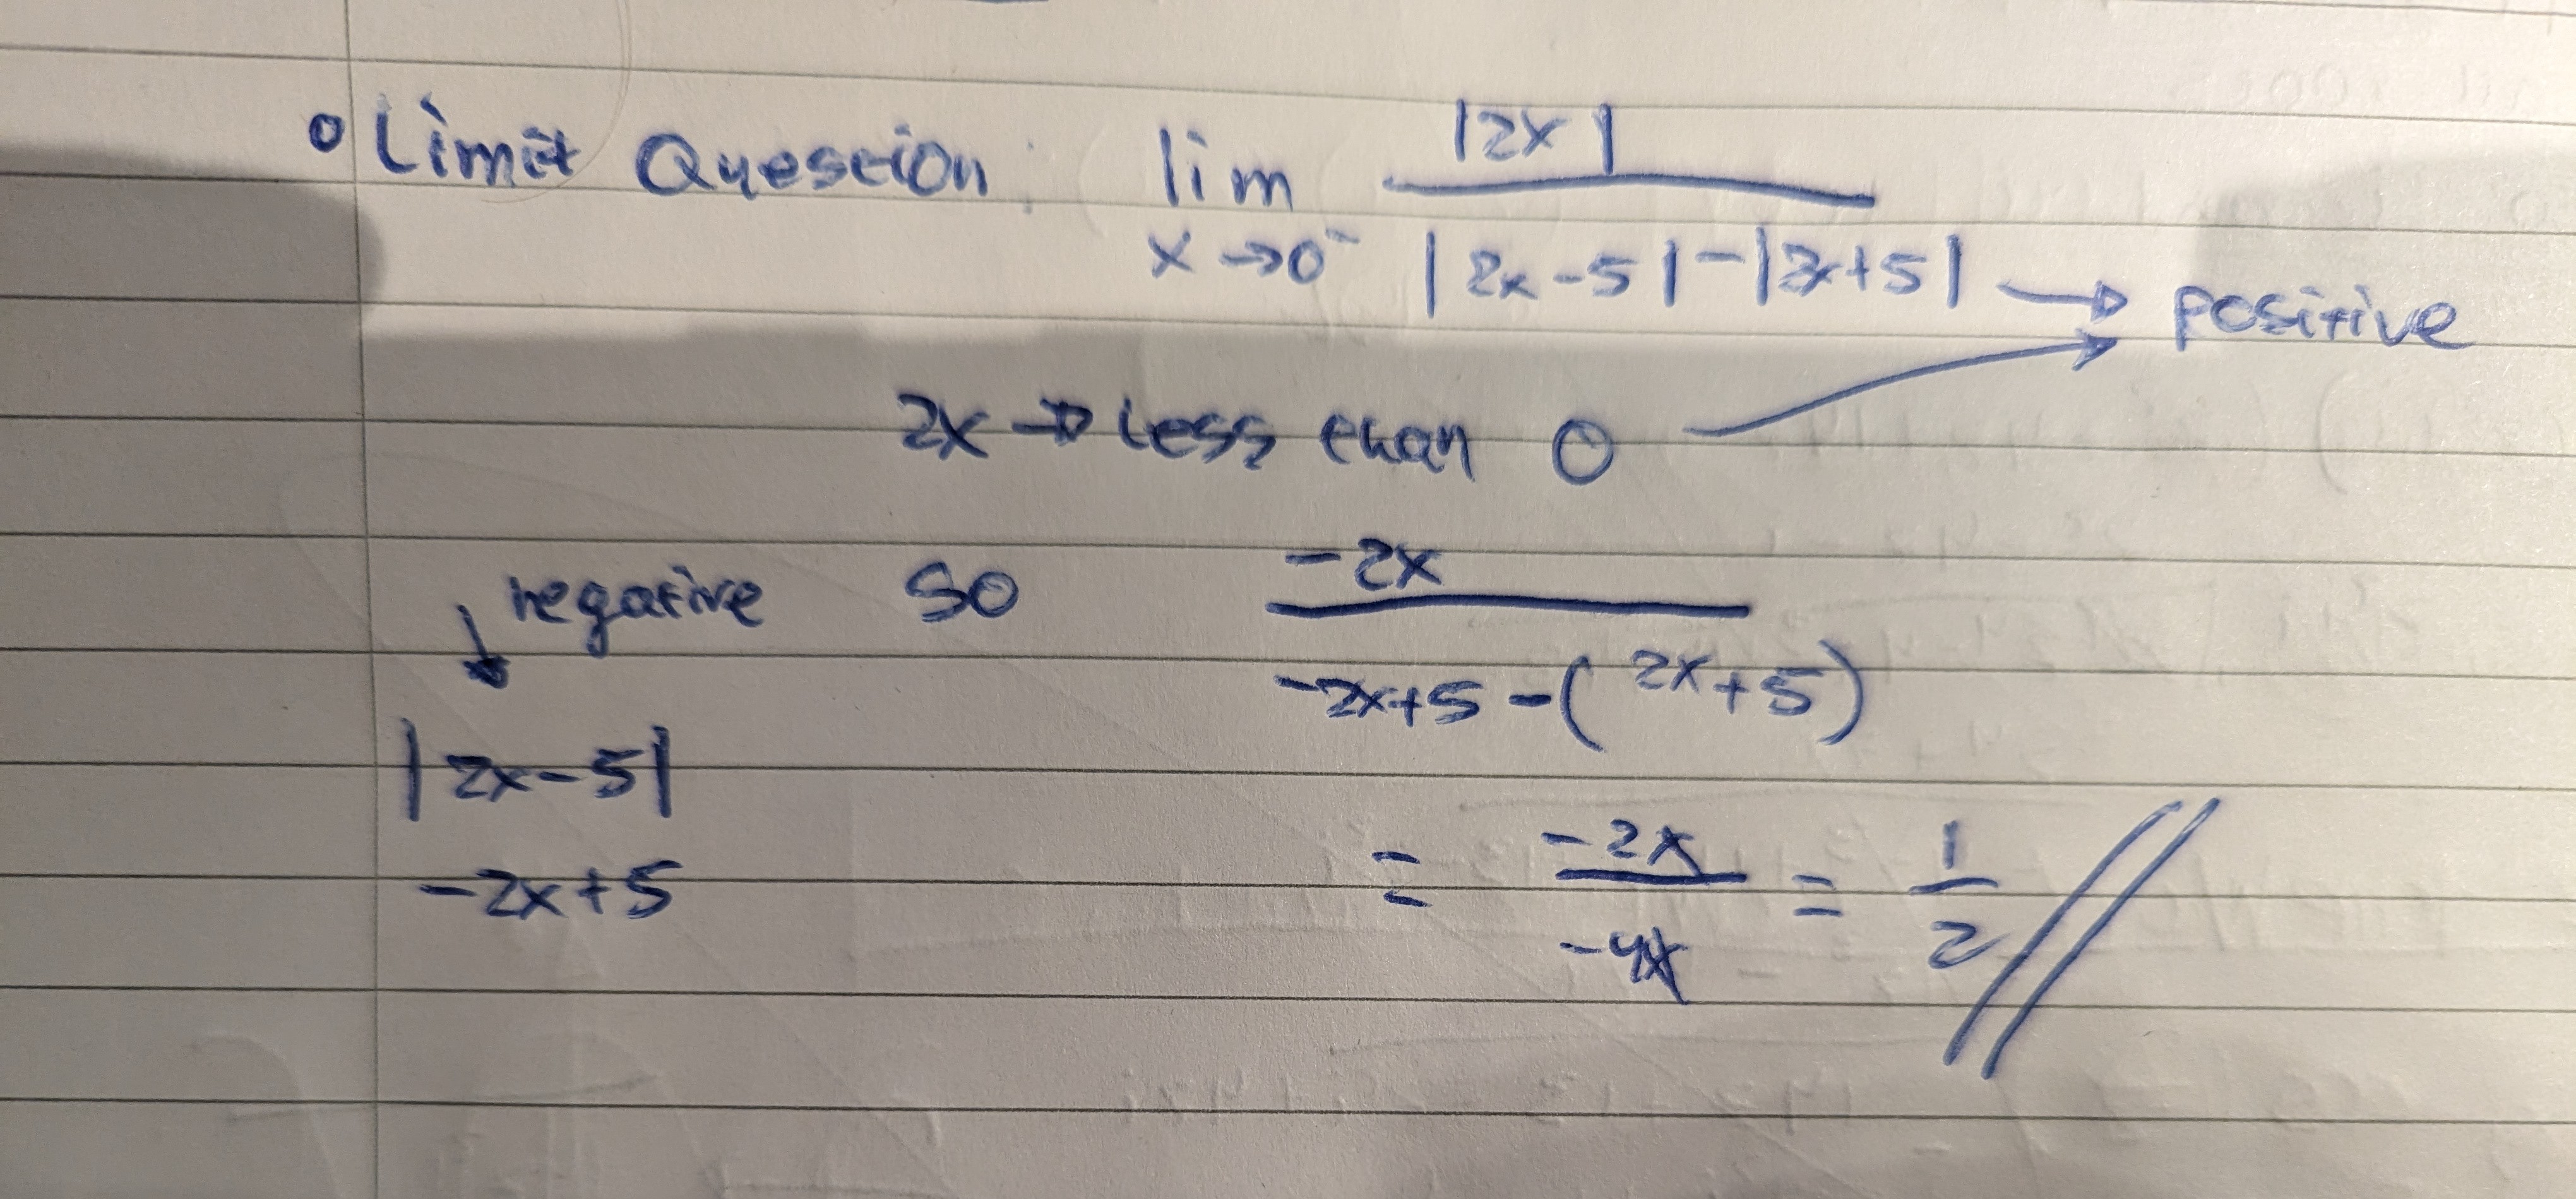 Limit Question: lim |2x|
x→0⁻ |2x-5|-|2x+5| → positive
2x → Less than 0
negative so -2x
-2x+5-(2x+5)
|2x-5|
-2x+5
= -2x/-4x = 1/2 //